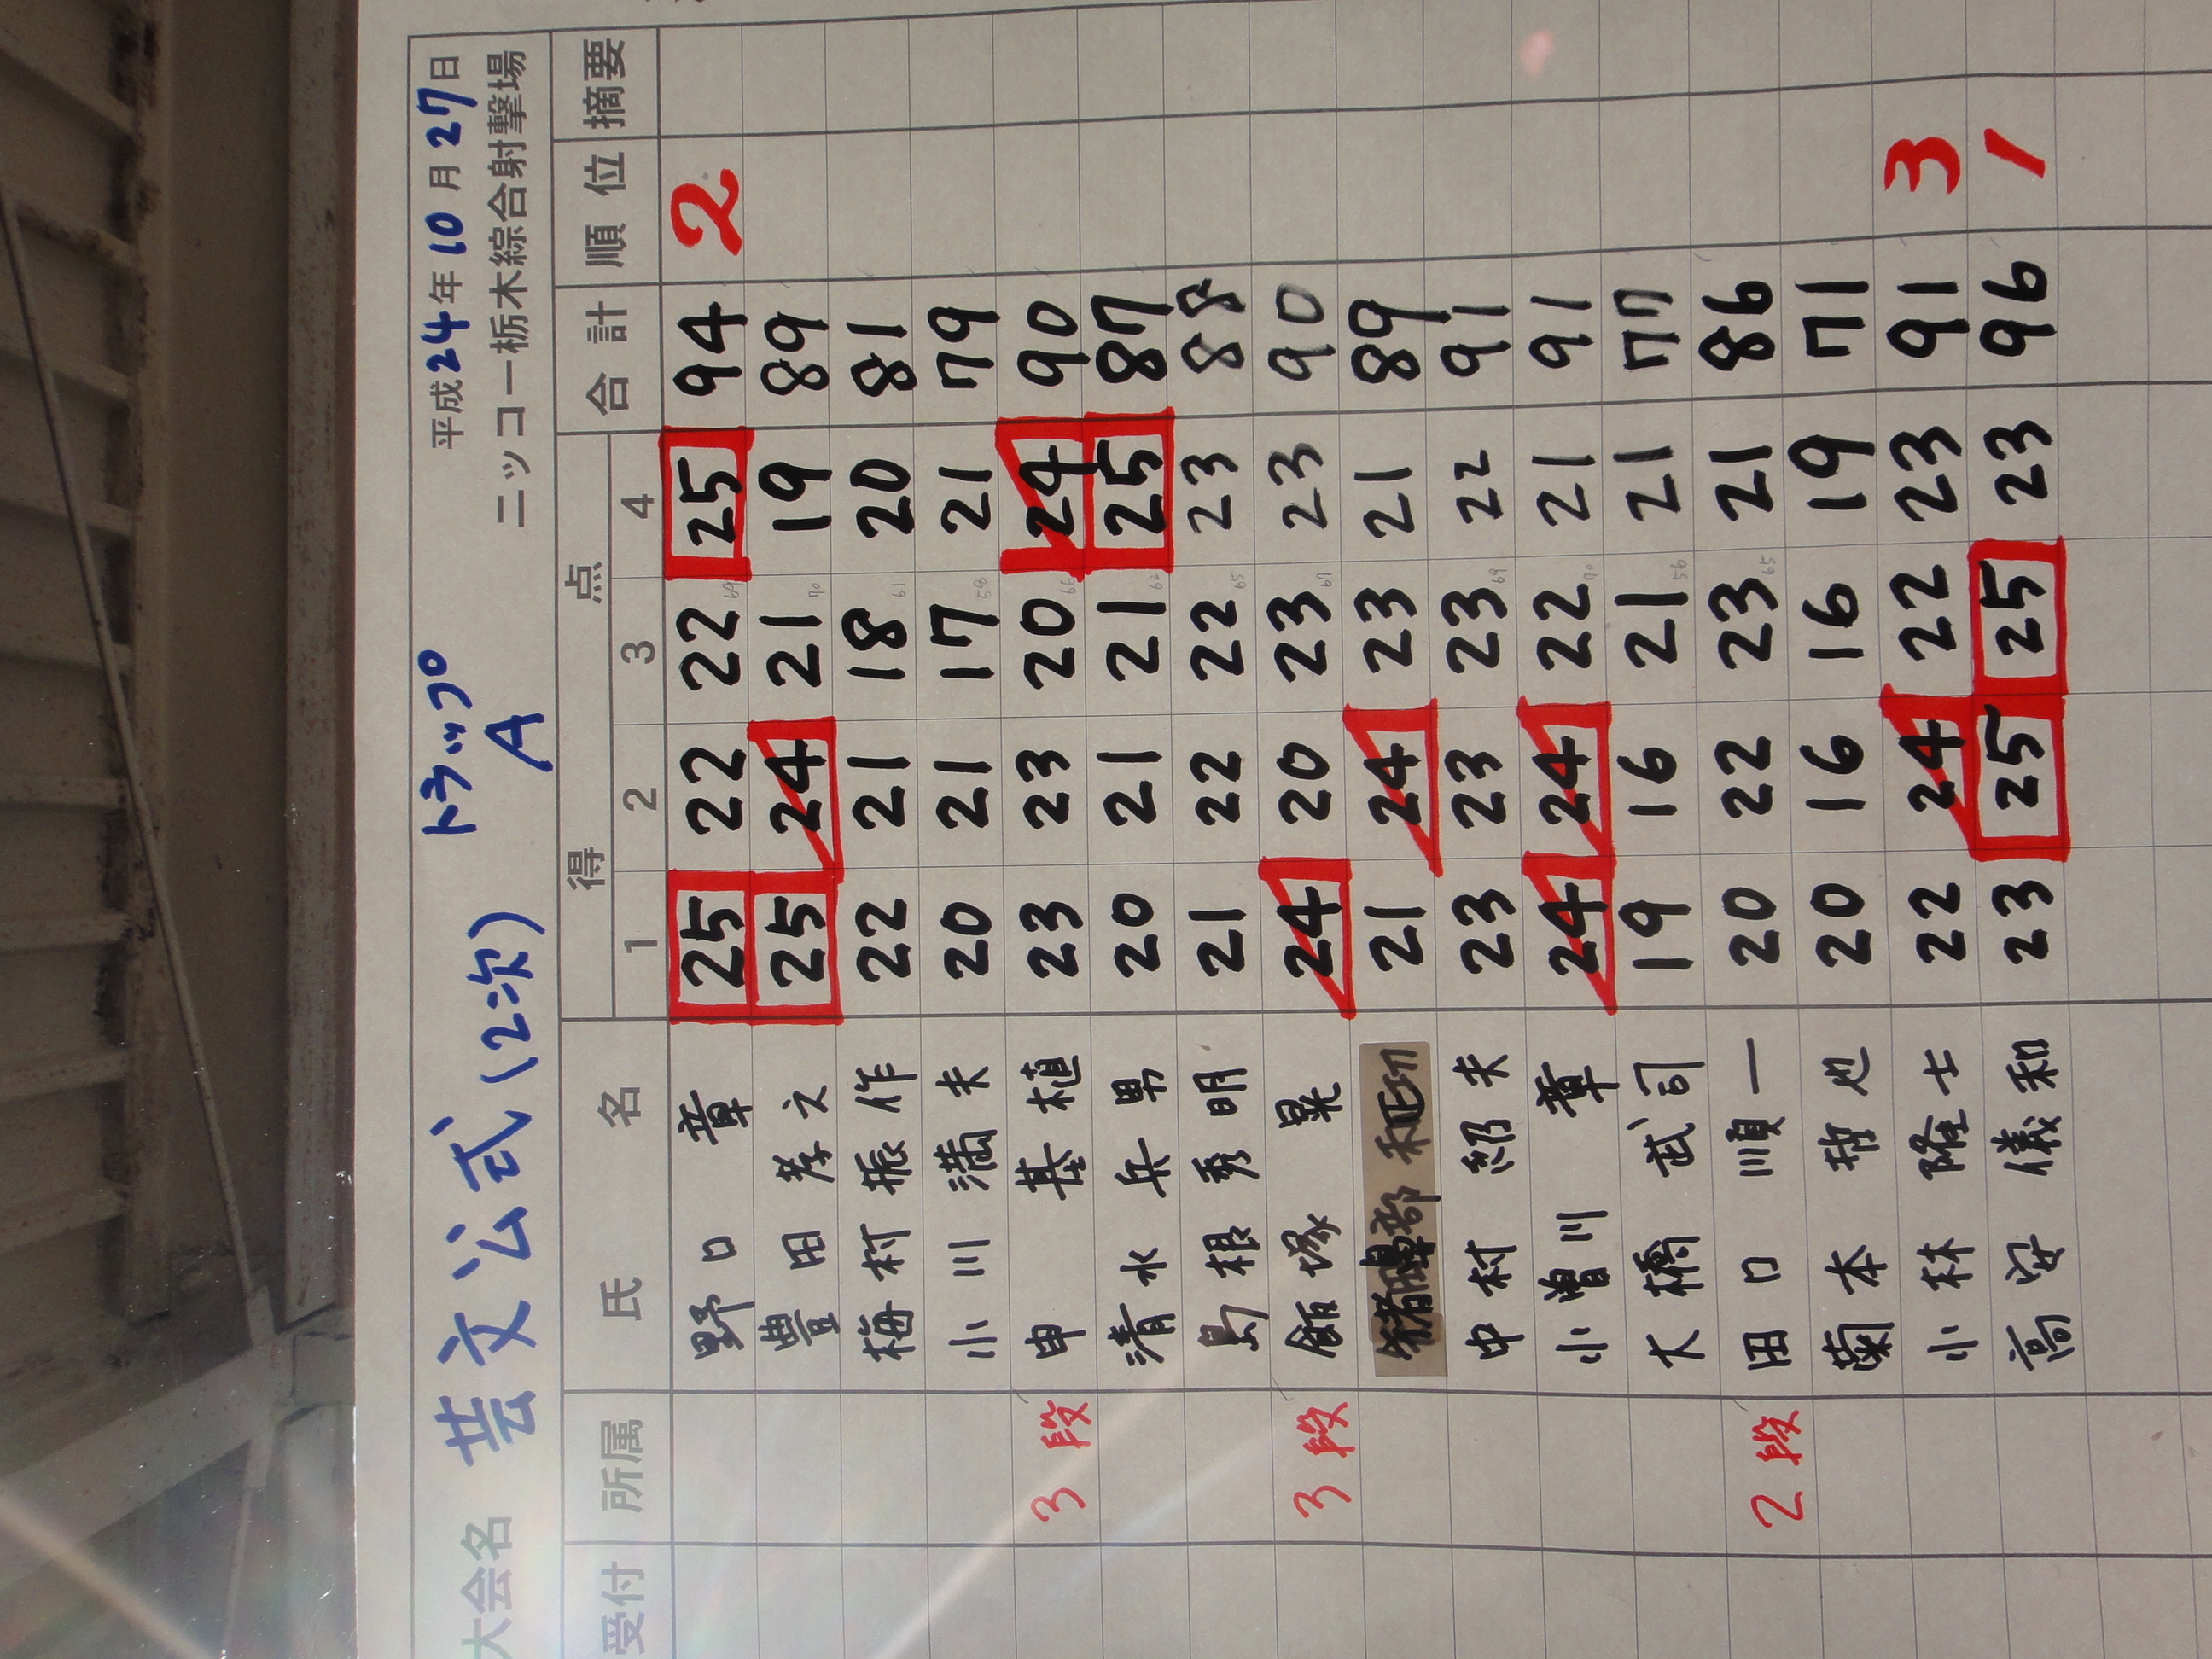 大会名 芸文公式(2次) トラップ A 平成24年10月27日
ニッコー栃木綜合射撃場
受付 所属 氏名 得点 合計 順位 摘要
1 2 3 4
野口 章 25 22 22 69 25 94 2
豊田 孝之 25 24 21 70 19 89
梅村 振作 22 21 18 61 20 81
小川 満夫 20 21 17 58 21 79
3段 申 基植 23 23 20 66 24 90
清水 兵男 20 21 21 62 25 87
島根 秀明 21 22 22 65 23 88
3段 飯塚 晃 24 20 23 67 23 90
猪鼻 21 24 23 21 89
中村 紹夫 23 23 23 69 22 91
小曽川 章 24 24 22 70 21 91
大橋 武司 19 16 21 56 21 77
2段 田口 順一 20 22 23 65 21 86
菊本 哲也 20 16 16 19 71
小林 隆士 22 24 22 23 91 3
高安 儀和 23 25 25 23 96 1